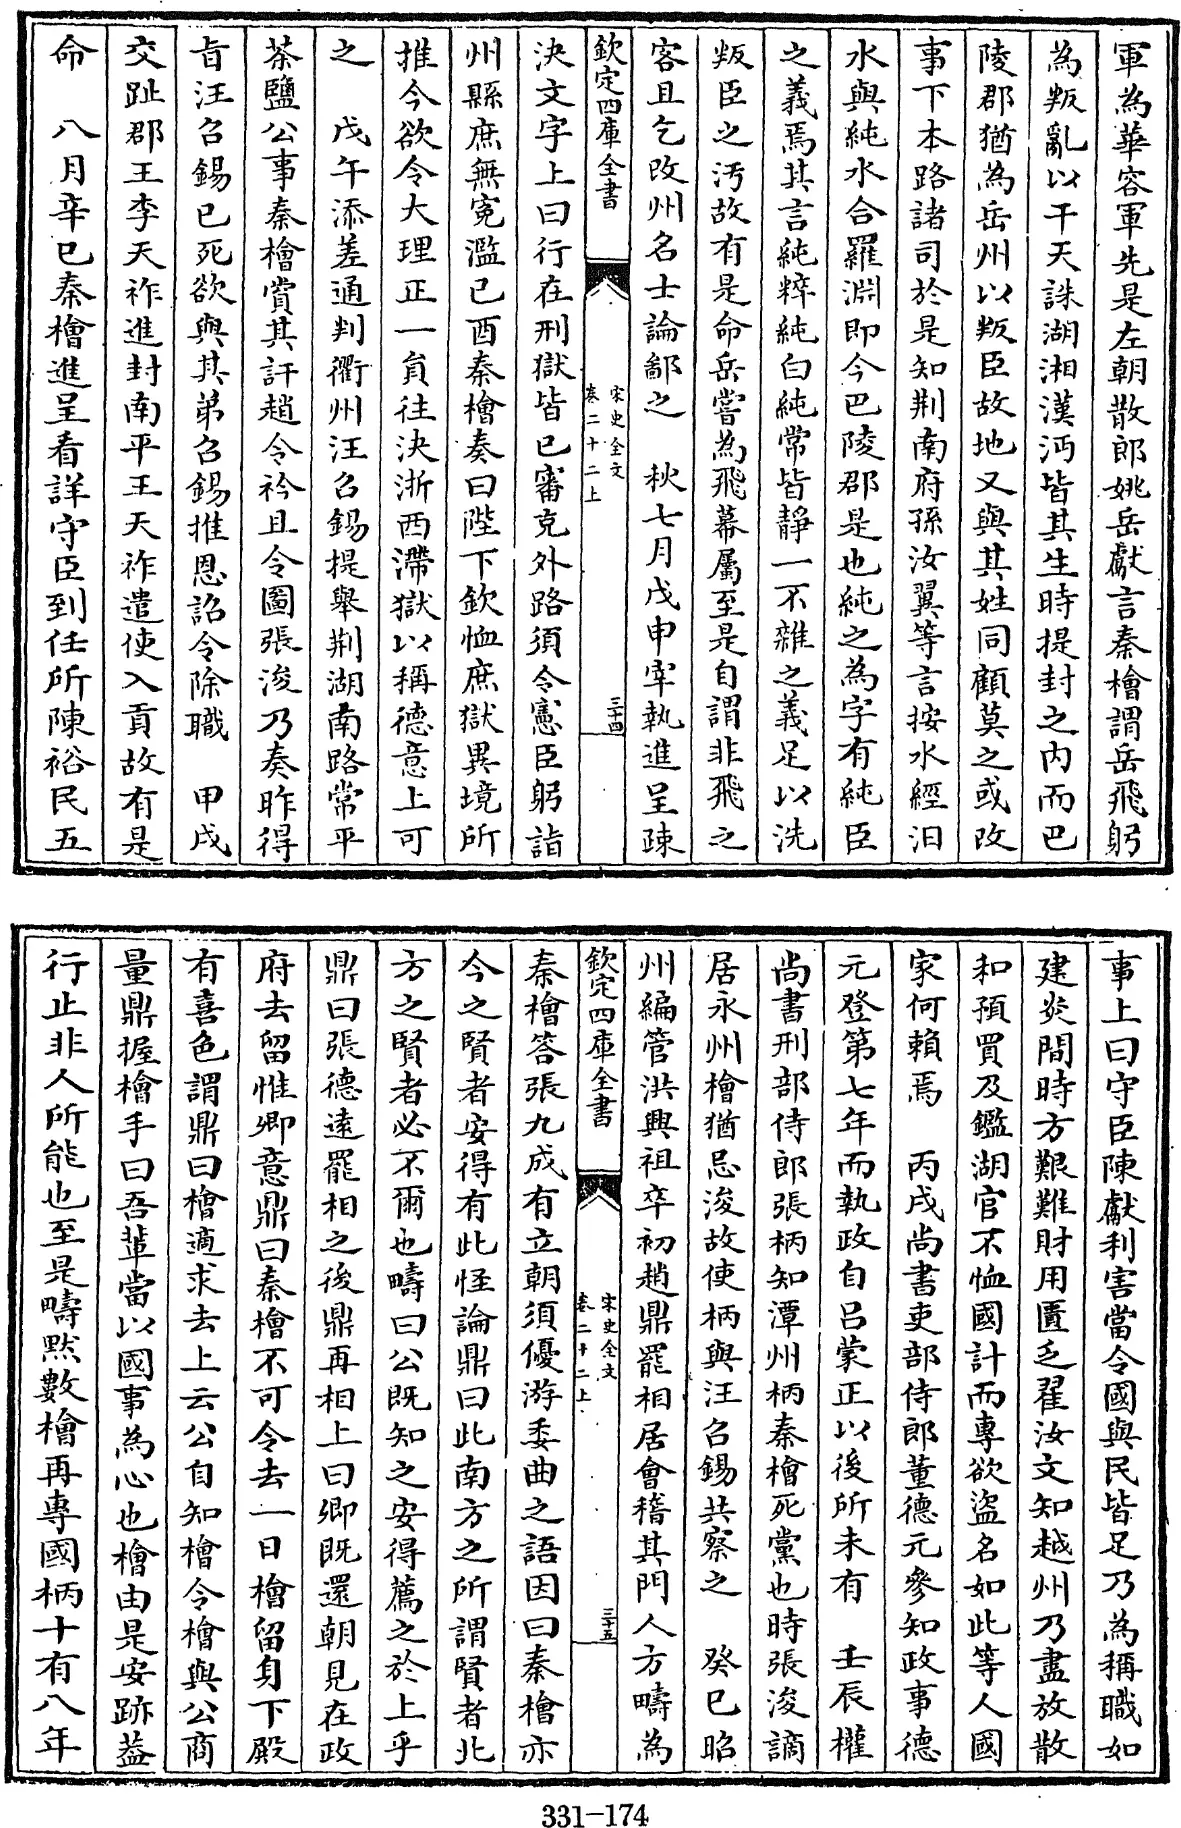 軍為華容軍先是左朝散郎姚岳獻言秦檜謂岳飛躬
為叛亂以干天誅湖湘漢沔皆其生時提封之内而巴
陵郡猶為岳州以叛臣故地又與其姓同顧莫之或改
事下本路諸司於是知荆南府孫汝翼等言按水經汨
水與純水合羅淵即今巴陵郡是也純之為字有純臣
之義焉其言純粹純白純常皆靜一不雜之義足以洗
叛臣之汚故有是命岳嘗為飛幕屬至是自謂非飛之
客且乞改州名士論鄙之　秋七月戊申宰執進呈疎
欽定四庫全書
宋史全文
卷二十二上
三十四
決文字上曰行在刑獄皆已審克外路須令憲臣躬詣
州縣庶無寃濫已酉秦檜奏曰陛下欽恤庶獄異境所
推今欲令大理正一員往決浙西滯獄以稱德意上可
之　戊午添差通判衢州汪召錫提舉荆湖南路常平
茶鹽公事秦檜賞其訐趙令衿且令圖張浚乃奏昨得
旨汪召錫已死欲與其弟召錫推恩詔令除職　甲戌
交趾郡王李天祚進封南平王天祚遣使入貢故有是
命　八月辛巳秦檜進呈看詳守臣到任所陳裕民五
事上曰守臣陳獻利害當令國與民皆足乃為稱職如
建炎間時方艱難財用匱乏翟汝文知越州乃盡放散
和預買及鑑湖官不恤國計而專欲盜名如此等人國
家何賴焉　丙戌尚書吏部侍郎董德元參知政事德
元登第七年而執政自吕蒙正以後所未有　壬辰權
尚書刑部侍郎張柄知潭州柄秦檜死黨也時張浚謫
居永州檜猶忌浚故使柄與汪召錫共察之　癸巳昭
州編管洪興祖卒初趙鼎罷相居會稽其門人方疇為
欽定四庫全書
宋史全文
卷二十二上
三十五
秦檜答張九成有立朝須優游委曲之語因曰秦檜亦
今之賢者安得有此怪論鼎曰此南方之所謂賢者北
方之賢者必不爾也疇曰公既知之安得薦之於上乎
鼎曰張德遠罷相之後鼎再相上曰卿既還朝見在政
府去留惟卿意鼎曰秦檜不可令去一日檜留身下殿
有喜色謂鼎曰檜適求去上云公自知檜令檜與公商
量鼎握檜手曰吾輩當以國事為心也檜由是安跡葢
行止非人所能也至是疇黙數檜再專國柄十有八年
331-174